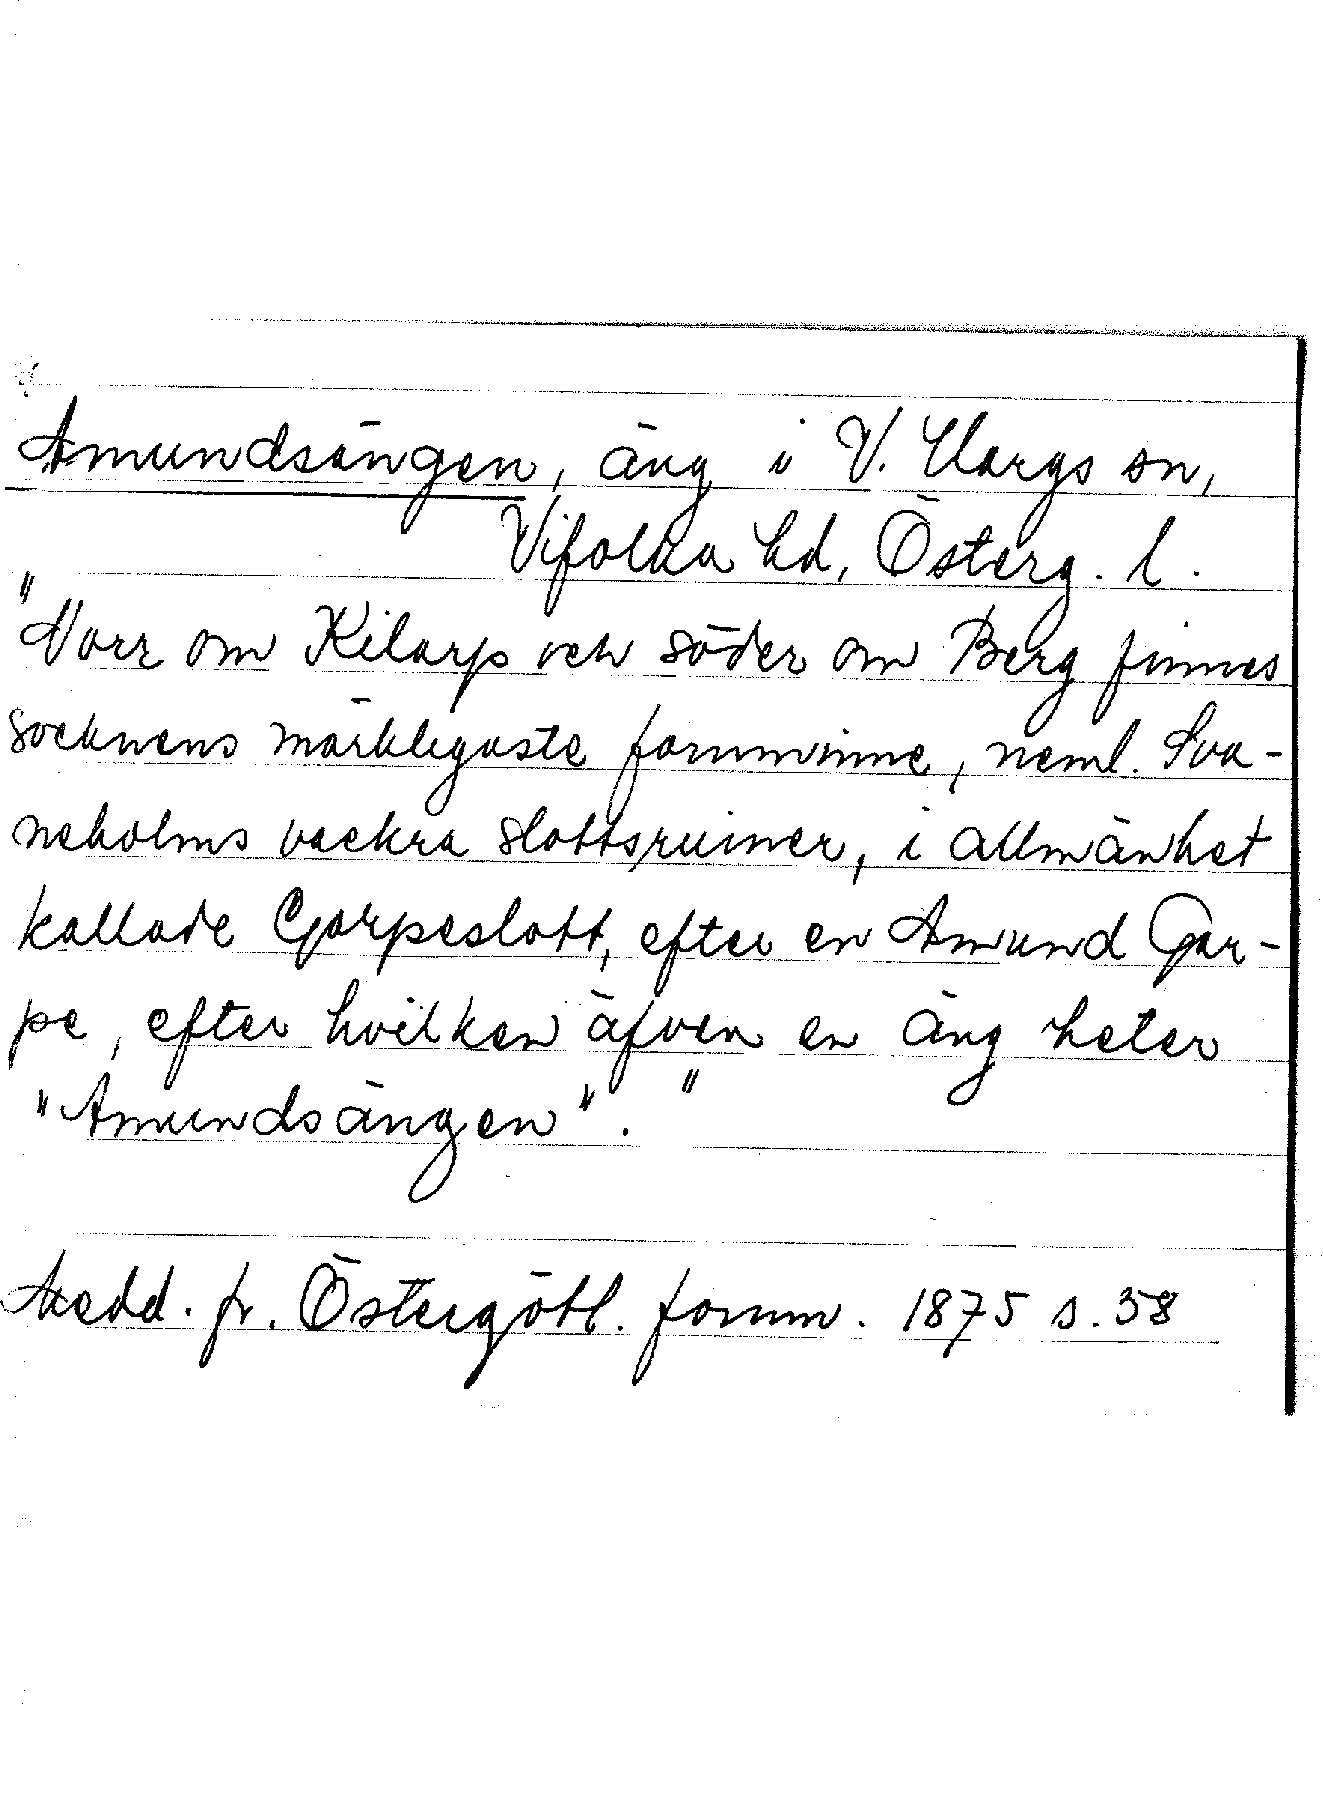 Amundsängen, äng i V. Hargs sn,
Vifolka hd, Österg. l.
"Norr om Kilarp och söder om Berg finnes
socknens märkligaste fornminne, neml. Sva-
neholms vackra slottsruiner, i allmänhet
kallade Garpeslott, efter en Amund Gar-
pe, efter hvilken äfven en äng heter
"Amundsängen"."
Medd. fr. Östergötl. fornm. 1875 s. 58